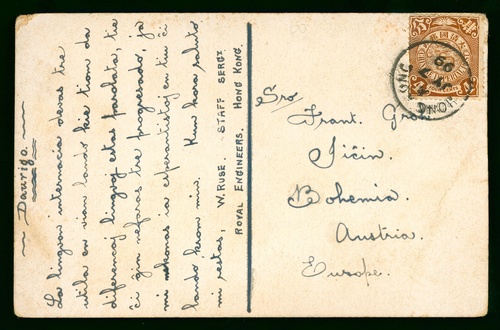 ~ Daŭrigo. ~
La lingvon internacia devas tre
utila en vian lando kie tiom da
diferencej lingvoj estas parolata, tie
ĉi ĝin nefaras tre progresado, ja
mi konas ia esperantistoj en tiu ĉi
lando krom min. Kun kora saluto
mi restas, W. RUSE. STAFF SERGT
ROYAL ENGINEERS. HONG KONG.
Sro,
Frant.
Jičin.
Bohemia.
Austria.
Europe.